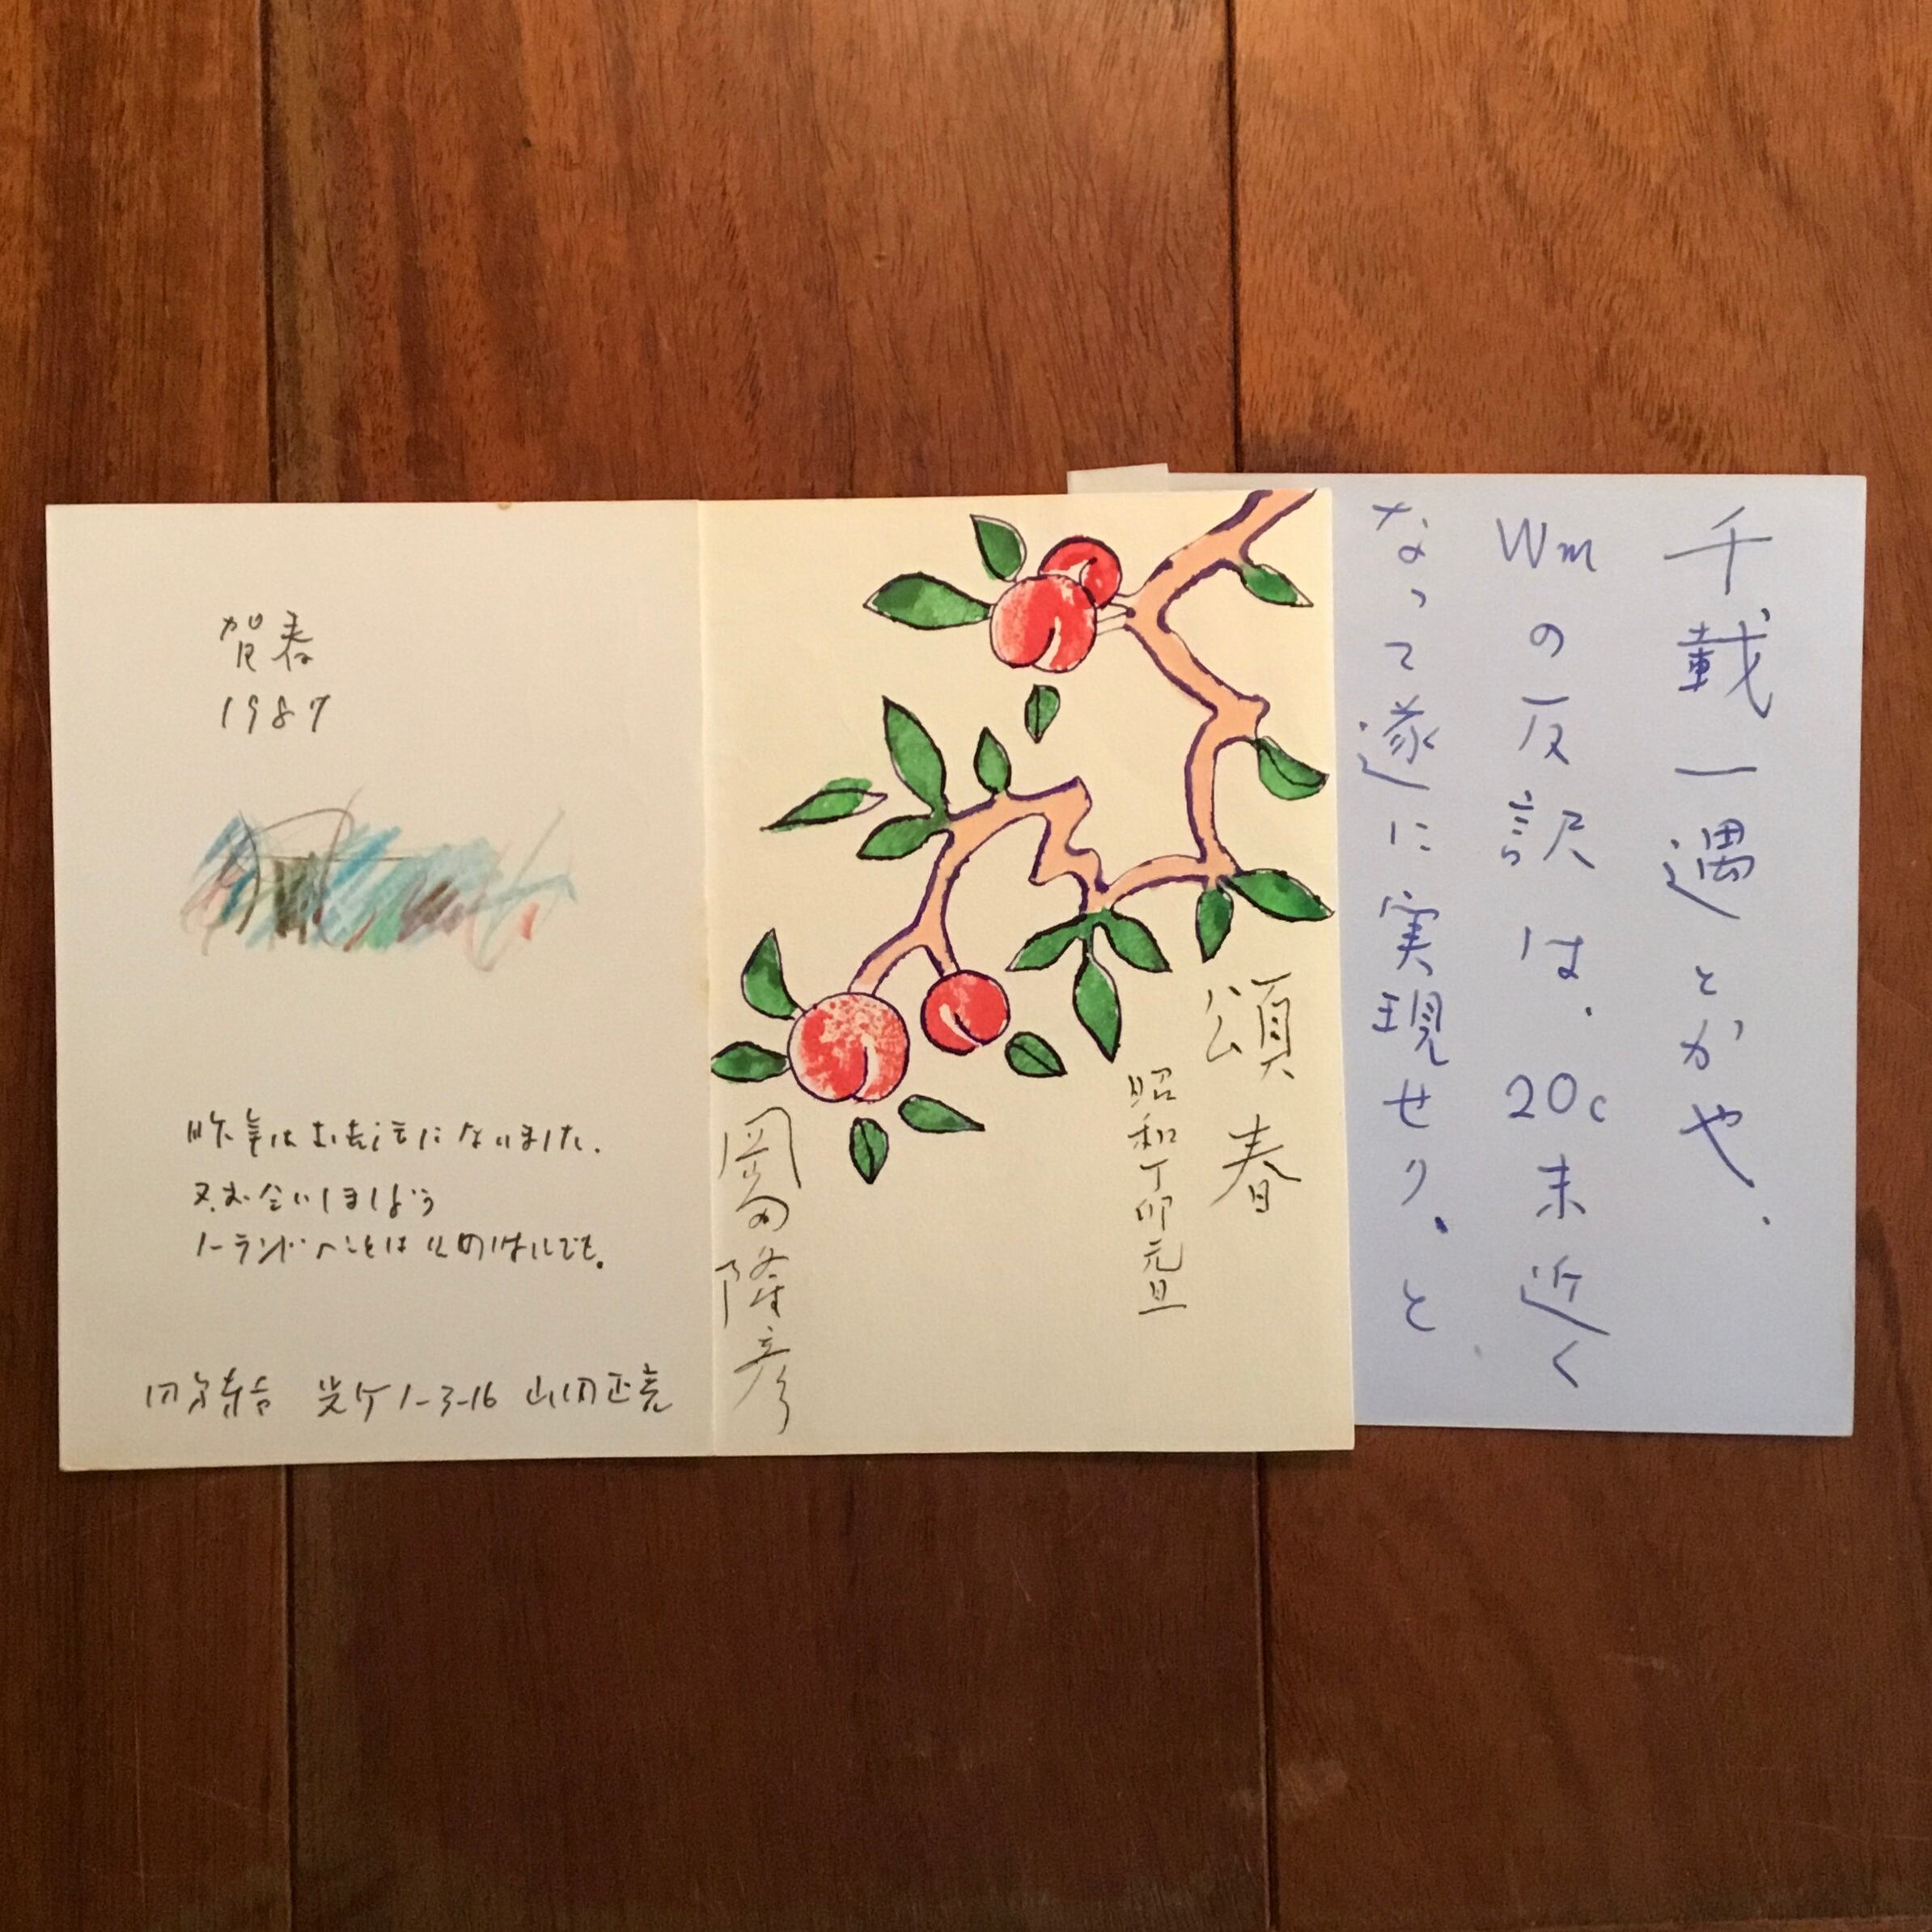 賀春
1987
昨年はお世話になりました.
又お会いしましょう
国分寺市 光町1-3-16 山田正亮
頌春
昭和丁卯元旦
岡田隆彦
千載一遇とかや.
Wmの反訳は. 20c末近く
なって遂に実現せり. と